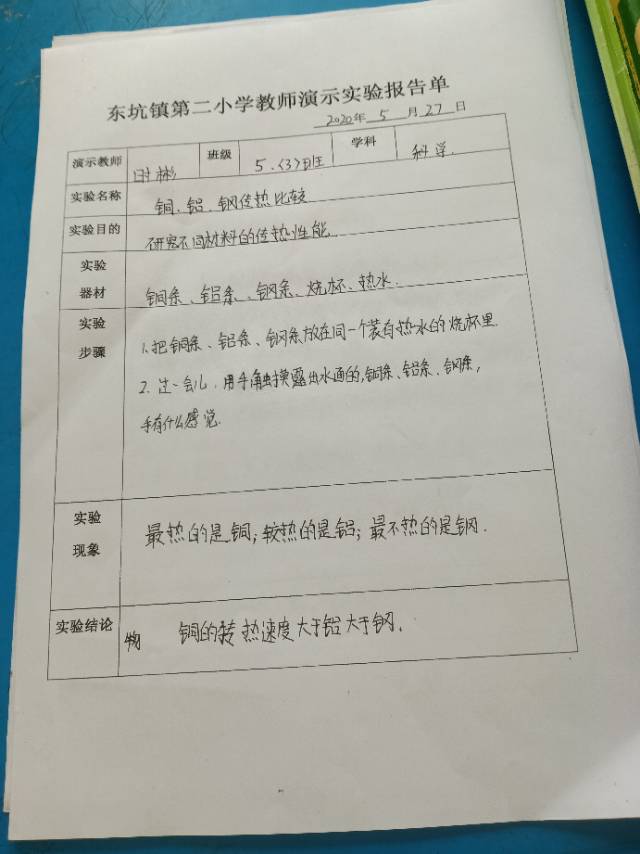 东坑镇第二小学教师演示实验报告单
2020年 5 月 27 日
演示教师 时彬 班级 5.(3)班 学科 科学.
实验名称 铜、铝、钢传热比较
实验目的 研究不同材料的传热性能
实验
器材 铜条、铝条、钢条、烧杯、热水.
实验
步骤
1.把铜条、铝条、钢条放在同一个装有热水的烧杯里.
2.过一会儿.用手触摸露出水面的,铜条、铝条、钢条,
手有什么感觉.
实验
现象
最热的是铜;较热的是铝;最不热的是钢.
实验结论 铜的 热速度大于铝大于钢.